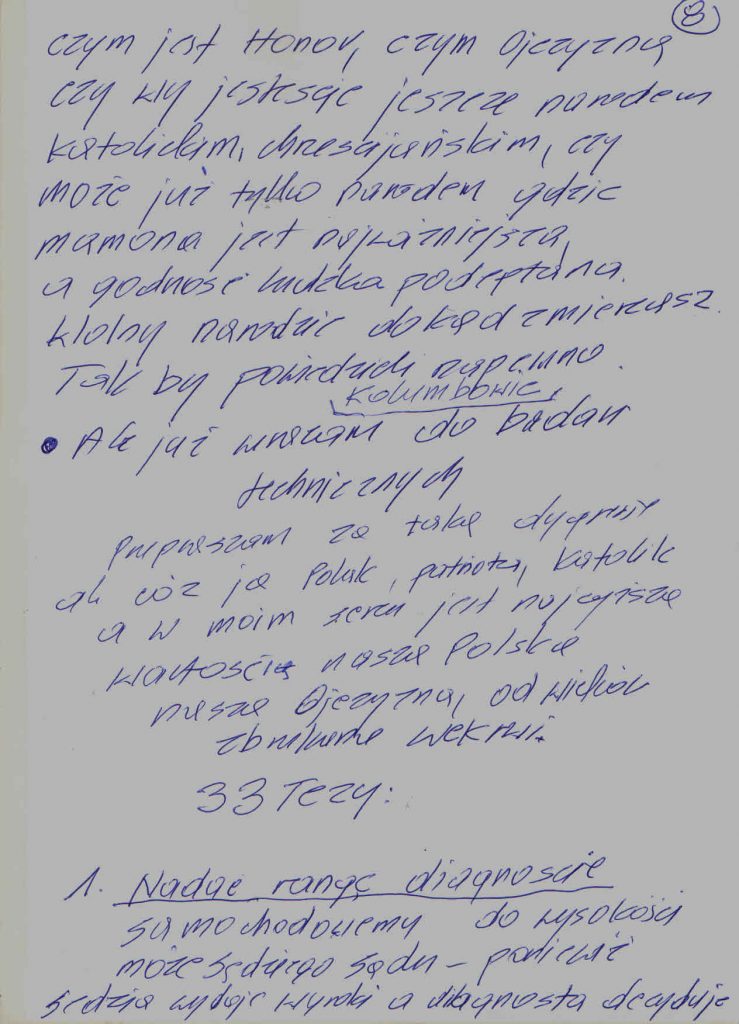 8
czym jest Honor, czym Ojczyzna
czy wy jesteście jeszcze narodem
katolickim, chrześcijańskim, czy
może już tylko narodem gdzie
mamona jest najważniejsza,
a godność ludzka podeptana.
narodzie dokąd zmierzasz.
Tak by powiedzieli zapewne
Kolumbowie.
• Ale już wracam do badań
technicznych
Przepraszam za taką dygresje
ale cóż ja Polak, patriota, Katolik
a w moim sercu jest najwyższą
wartością nasza Polska
nasza Ojczyzna, od wieków
we krwi.
33 Tezy:
1. Nadać rangę diagnoście
samochodowemu do wysokości
może sędziego sądu – ponieważ
sędzia wydaje wyroki a diagnosta decyduje